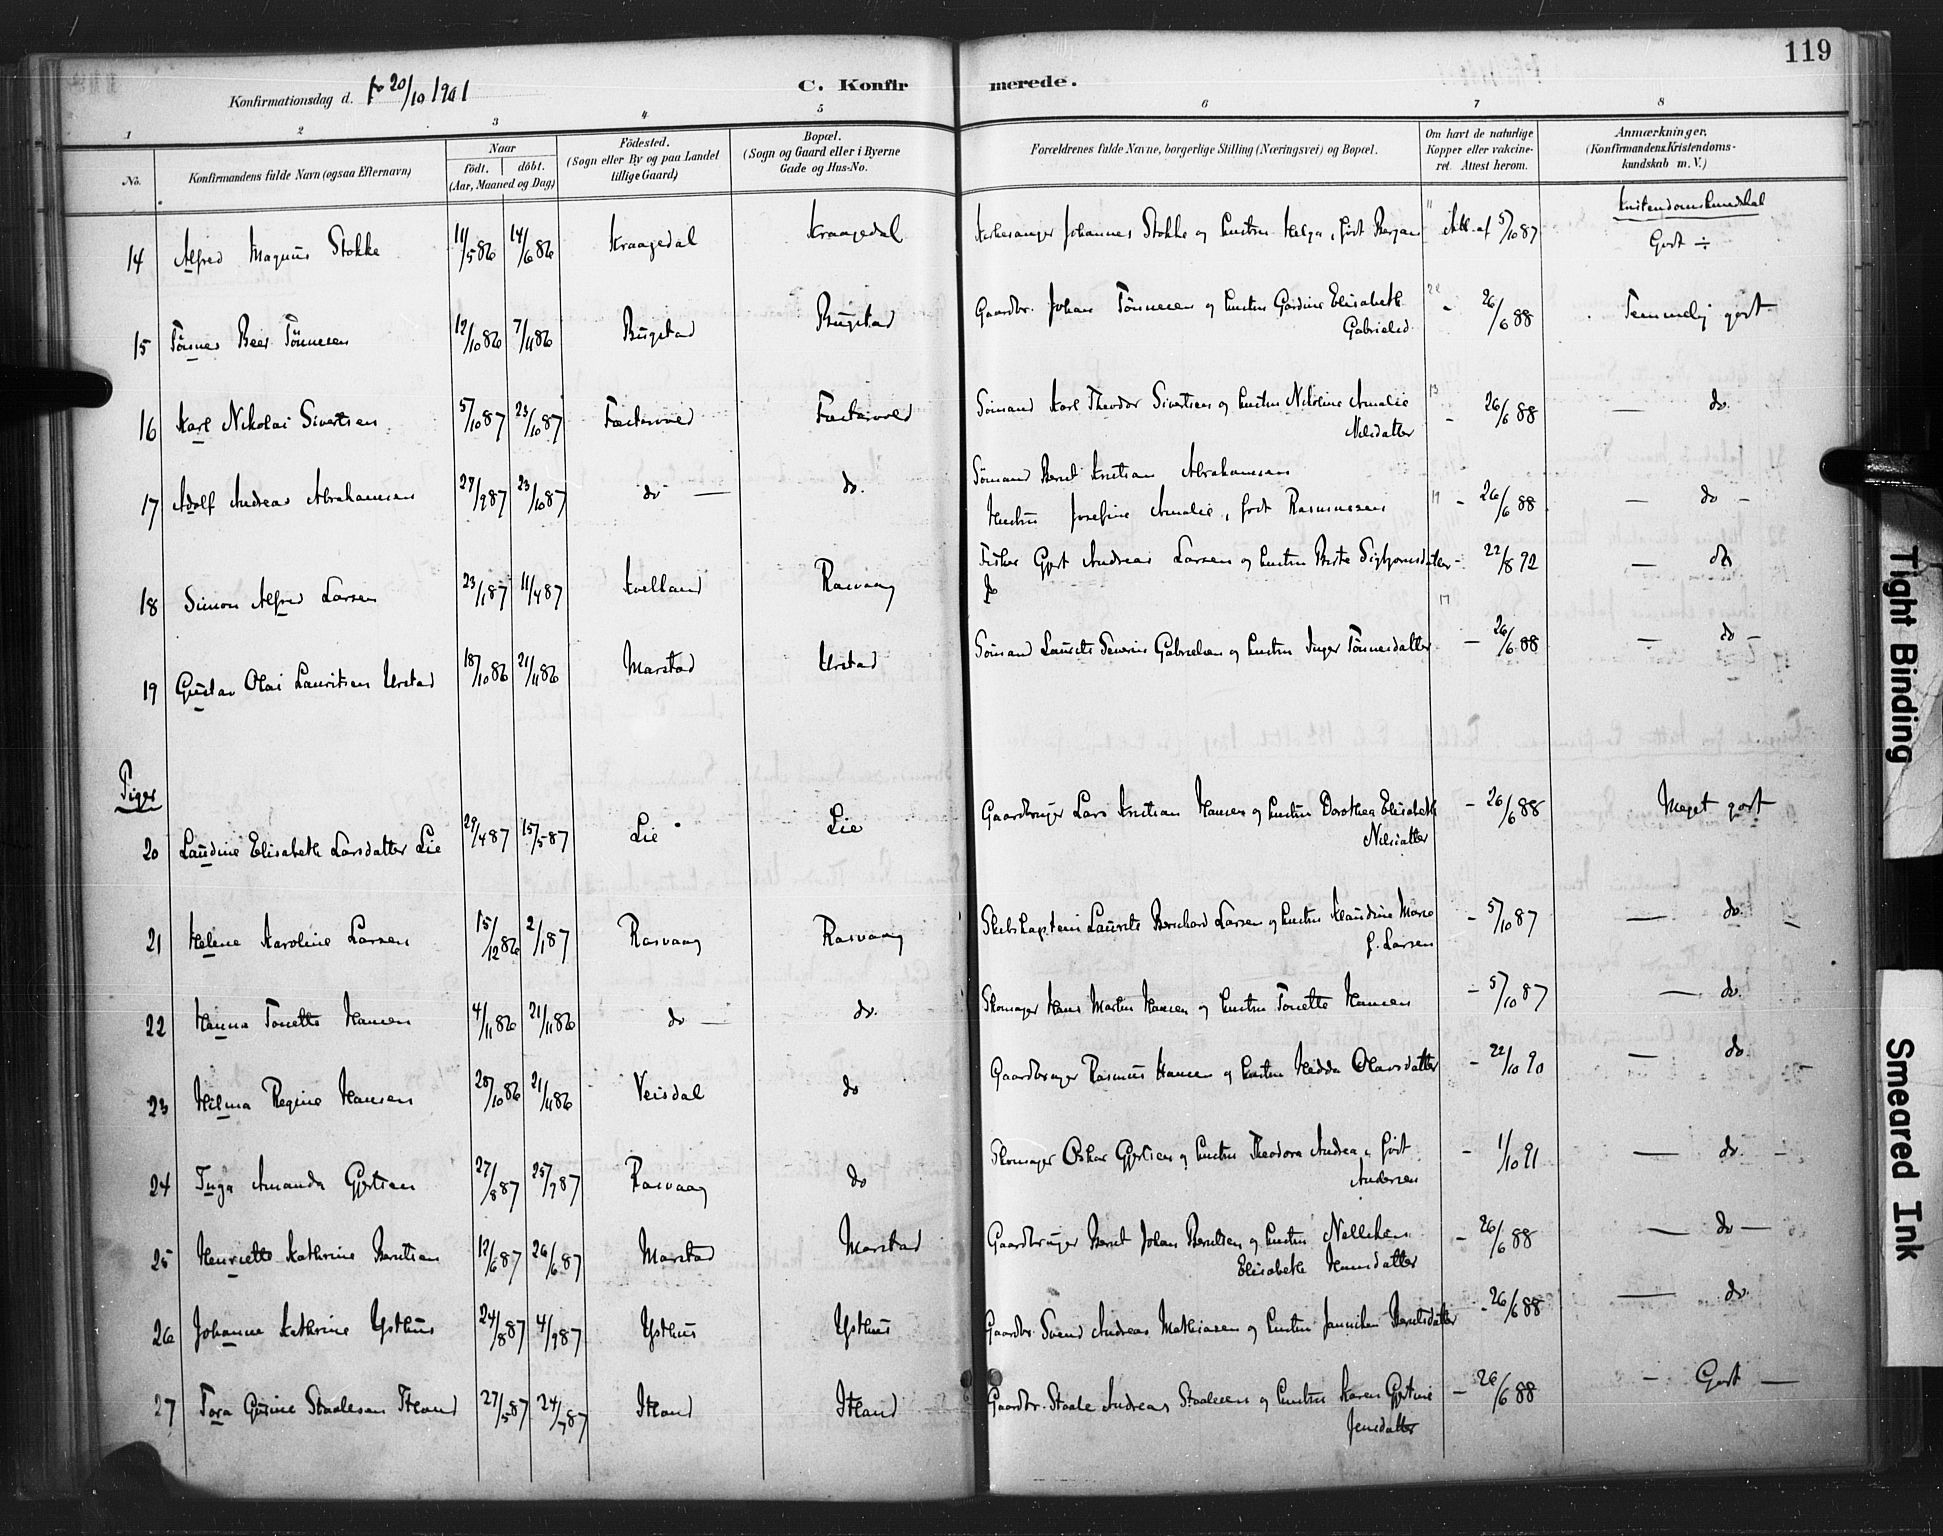 119
C. Konfirmerede.
Konfirmationsdag d. 20/10 1901
1 2 3 4 5 6 7 8
No. Konfirmandens fulde Navn (ogsaa Efternavn) Naar födt. döbt. (Aar, Maaned og Dag) Födested. (Sogn eller By og paa Landet tillige Gaard) Bopæl. (Sogn og Gaard eller i Byerne Gade og Hus-No. Forældrenes fulde Navne, borgerlige Stilling (Næringsvei) og Bopæl. Om havt de naturlige Kopper eller vakcineret. Attest herom. Anmærkninger. (Konfirmandens Kristendomskundskab m. V.)
Kristendomskundskab
14 Alfred Magnus Stokke 11/5 86 14/6 86 Kraagedal Kraagedal Kirkesanger Johannes Stokke og hustru Helga, født Att. af 5/10 87 Godt ÷
15 Tönnes Tönnesen 12/10 86 7/11 86 Bugstad Bugstad Gaardbr. Johan Tönnesen og hustru Gardine Elisabeth
Gabrielsd. - 26/6 88 Temmelig godt
16 Karl Nikolai Sivertsen 5/10 87 23/10 87 Sömand Karl Theodor Sivertsen og hustru Nikoline Amalie
Nilsdatter - 26/6 88 — do.
17 Adolf Andreas Abrahamsen 27/9 87 23/10 87 do — do. Sömand Bernt Kristian Abrahamsen
Hustru Josefine Amalie, født Rasmussen - 26/6 88 — do -
18 Simon Alfred Larsen 23/1 87 11/4 87 Kvelland Rasvaag Fisker Gjert Andreas Larsen og hustru Berte Sigbjörnsdatter - 22/8 92 — do
19 Gustav Olai Lauritsen Urstad 18/10 86 21/11 86 Marstad Urstad Sömand Laurits Severin Gabrielsen og hustru Inger Tönnesdatter - 26/6 88 — do -
Piger
20 Laudine Elisabeth Larsdatter Lie 29/4 87 15/5 87 Lie Lie Gaardbruger Lars Kristian Hansen og hustru Dorothea Elisabeth
Nilsdatter - 26/6 88 Meget godt
21 Helene Karoline Larsen 15/12 86 2/1 87 Rasvaag Rasvaag Skibskaptein Laurits Bernhard Larsen og hustru Klaudine Marie
f. Larsen - 5/10 87 — do.
22 Hanna Tonette Hansen 4/11 86 21/11 86 do — do. Skomager Hans Martin Hansen og hustru Tonette Hansen - 5/10 87 — do.
23 Hilma Regine Hansen 28/10 86 21/11 86 Veisdal do Gaardbruger Rasmus Hansen og hustru Hedda Olavsdatter - 22/10 90 — do.
24 Inga Amanda Gjertsen 27/8 87 25/9 87 Rasvaag do Skomager Oskar Gjertsen og hustru Theodora Andrea, født
Andersen - 1/10 91 — do -
25 Henriette Kathrine Berntsen 12/6 87 26/6 87 Marstad Marstad Gaardbruger Bernt Johan Berntsen og hustru Nelliken
Elisabeth Hansdatter - 26/6 88 — do —
26 Johanne Kathrine Ysthus 24/8 87 4/9 87 Ysthus Ysthus Gaardbr. Svend Andreas Mathiasen og hustru Janniken Berntsdatter - 26/6 88 — do.
27 Tora Gusine Staalesen Itland 27/5 87 24/7 87 Itland Itland Gaardbr. Staale Andreas Staalesen og hustru Karen Gjertine
Jensdatter - 26/6 88 - Godt —
Tight Binding
Smeared Ink